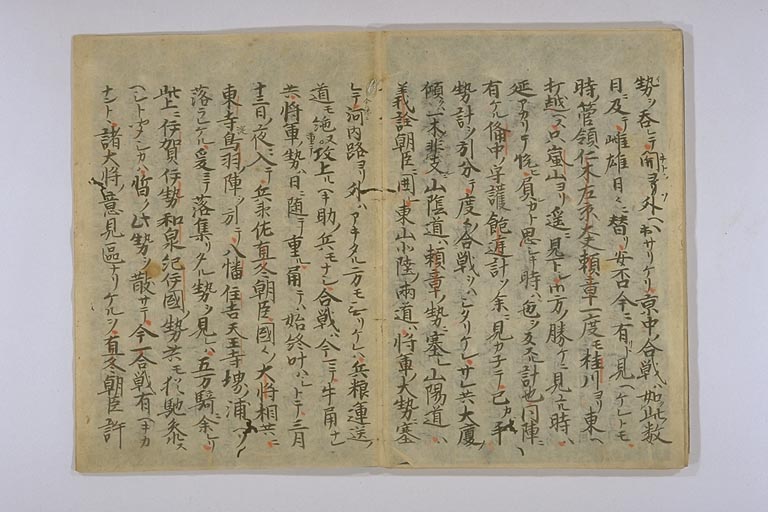 勢ヲ呑レテ開ヨリ外ヘハ出サリケリ京中ノ合戦ハ如此数
日ニ及テ雌雄日々ニ替リ安否今ニ有ト見ヘケレトモ
時ノ管領仁木左京大夫頼章ハ一度モ桂川ヨリ東ヘ
打越ヘス只嵐山ヨリ遥ニ見下シ御方ノ勝ケニ見ユル時ハ
延アカリテ悦ヒ負カト思シキ時ハ色ヲ変スル計也同陣ニ
有ケル備中ノ守護飽浜計ソ余ニ見カ子テ己カ手
勢計ヲ引分テ度々ノ合戦ヲハシタリケレサレ共大廈ノ
傾クハ一木ノ支ニ非ス山陰道ハ頼章ノ勢ニ塞レ山陽道ハ
義詮朝臣ニ囲レ東山北陸ノ両道ハ将軍ノ大勢ニ塞
レテ河内路ヨリ外ハアキタル方モナカリケレハ兵粮運送ノ
道モ絶ヌ攻上ルヘキ助ノ兵モナシ合戦ハ今ニテ牛角ナレ
共将軍ノ勢日ニ随テ重ル角テハ始終叶ハシトテ三月
十三日ノ夜ニ入テ兵衛佐直冬朝臣国々ノ大将相共ニ
東寺淀鳥羽ノ陣ヲ引テ八幡住吉天王寺堺ノ浦ヘソ
落ラレケル爰ニテ落集リタル勢ヲ見レハ五万騎ニ余レリ
此上ニ伊賀伊勢和泉紀伊国ノ勢共モ猶馳参ス
ヘシトキコヘシカハ暫ク此勢ヲ散サテ今一合戦有ヘキカ
ナント諸大将ノ意見区ナリケルヲ直冬朝臣許